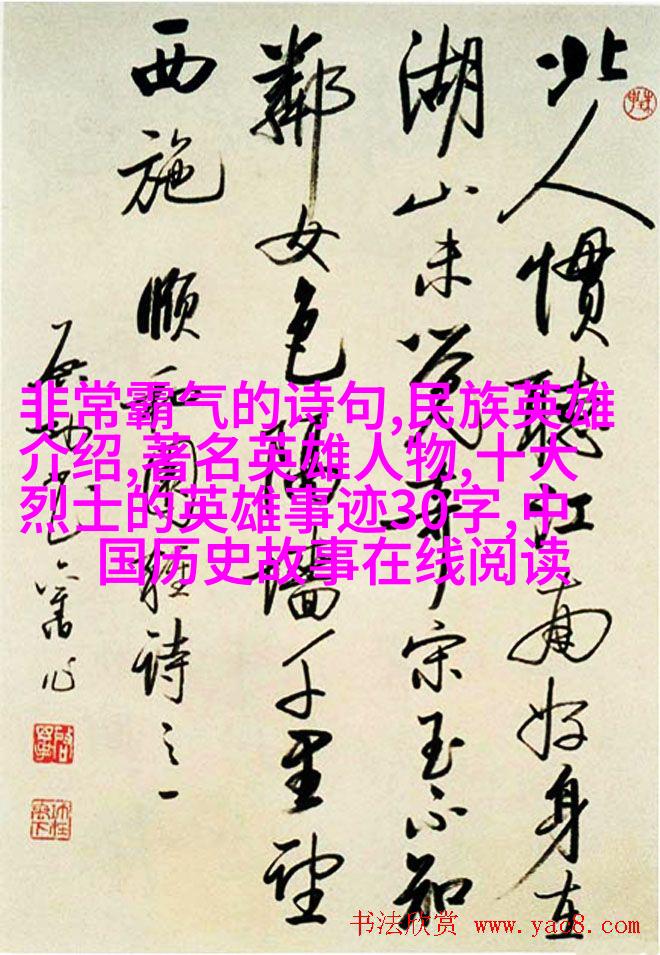 非常霸气的诗句,民族英雄
介绍,著名英雄人物,十大
烈士的英雄事迹30字,中
国历史故事在线阅读
北人慣聽江南好身在
湖山未覺奇宋玉不知
鄰女色隔牆千里望
西施 頤和園雜詩之一
启功
舊作
书法欣赏 www.yac8.com